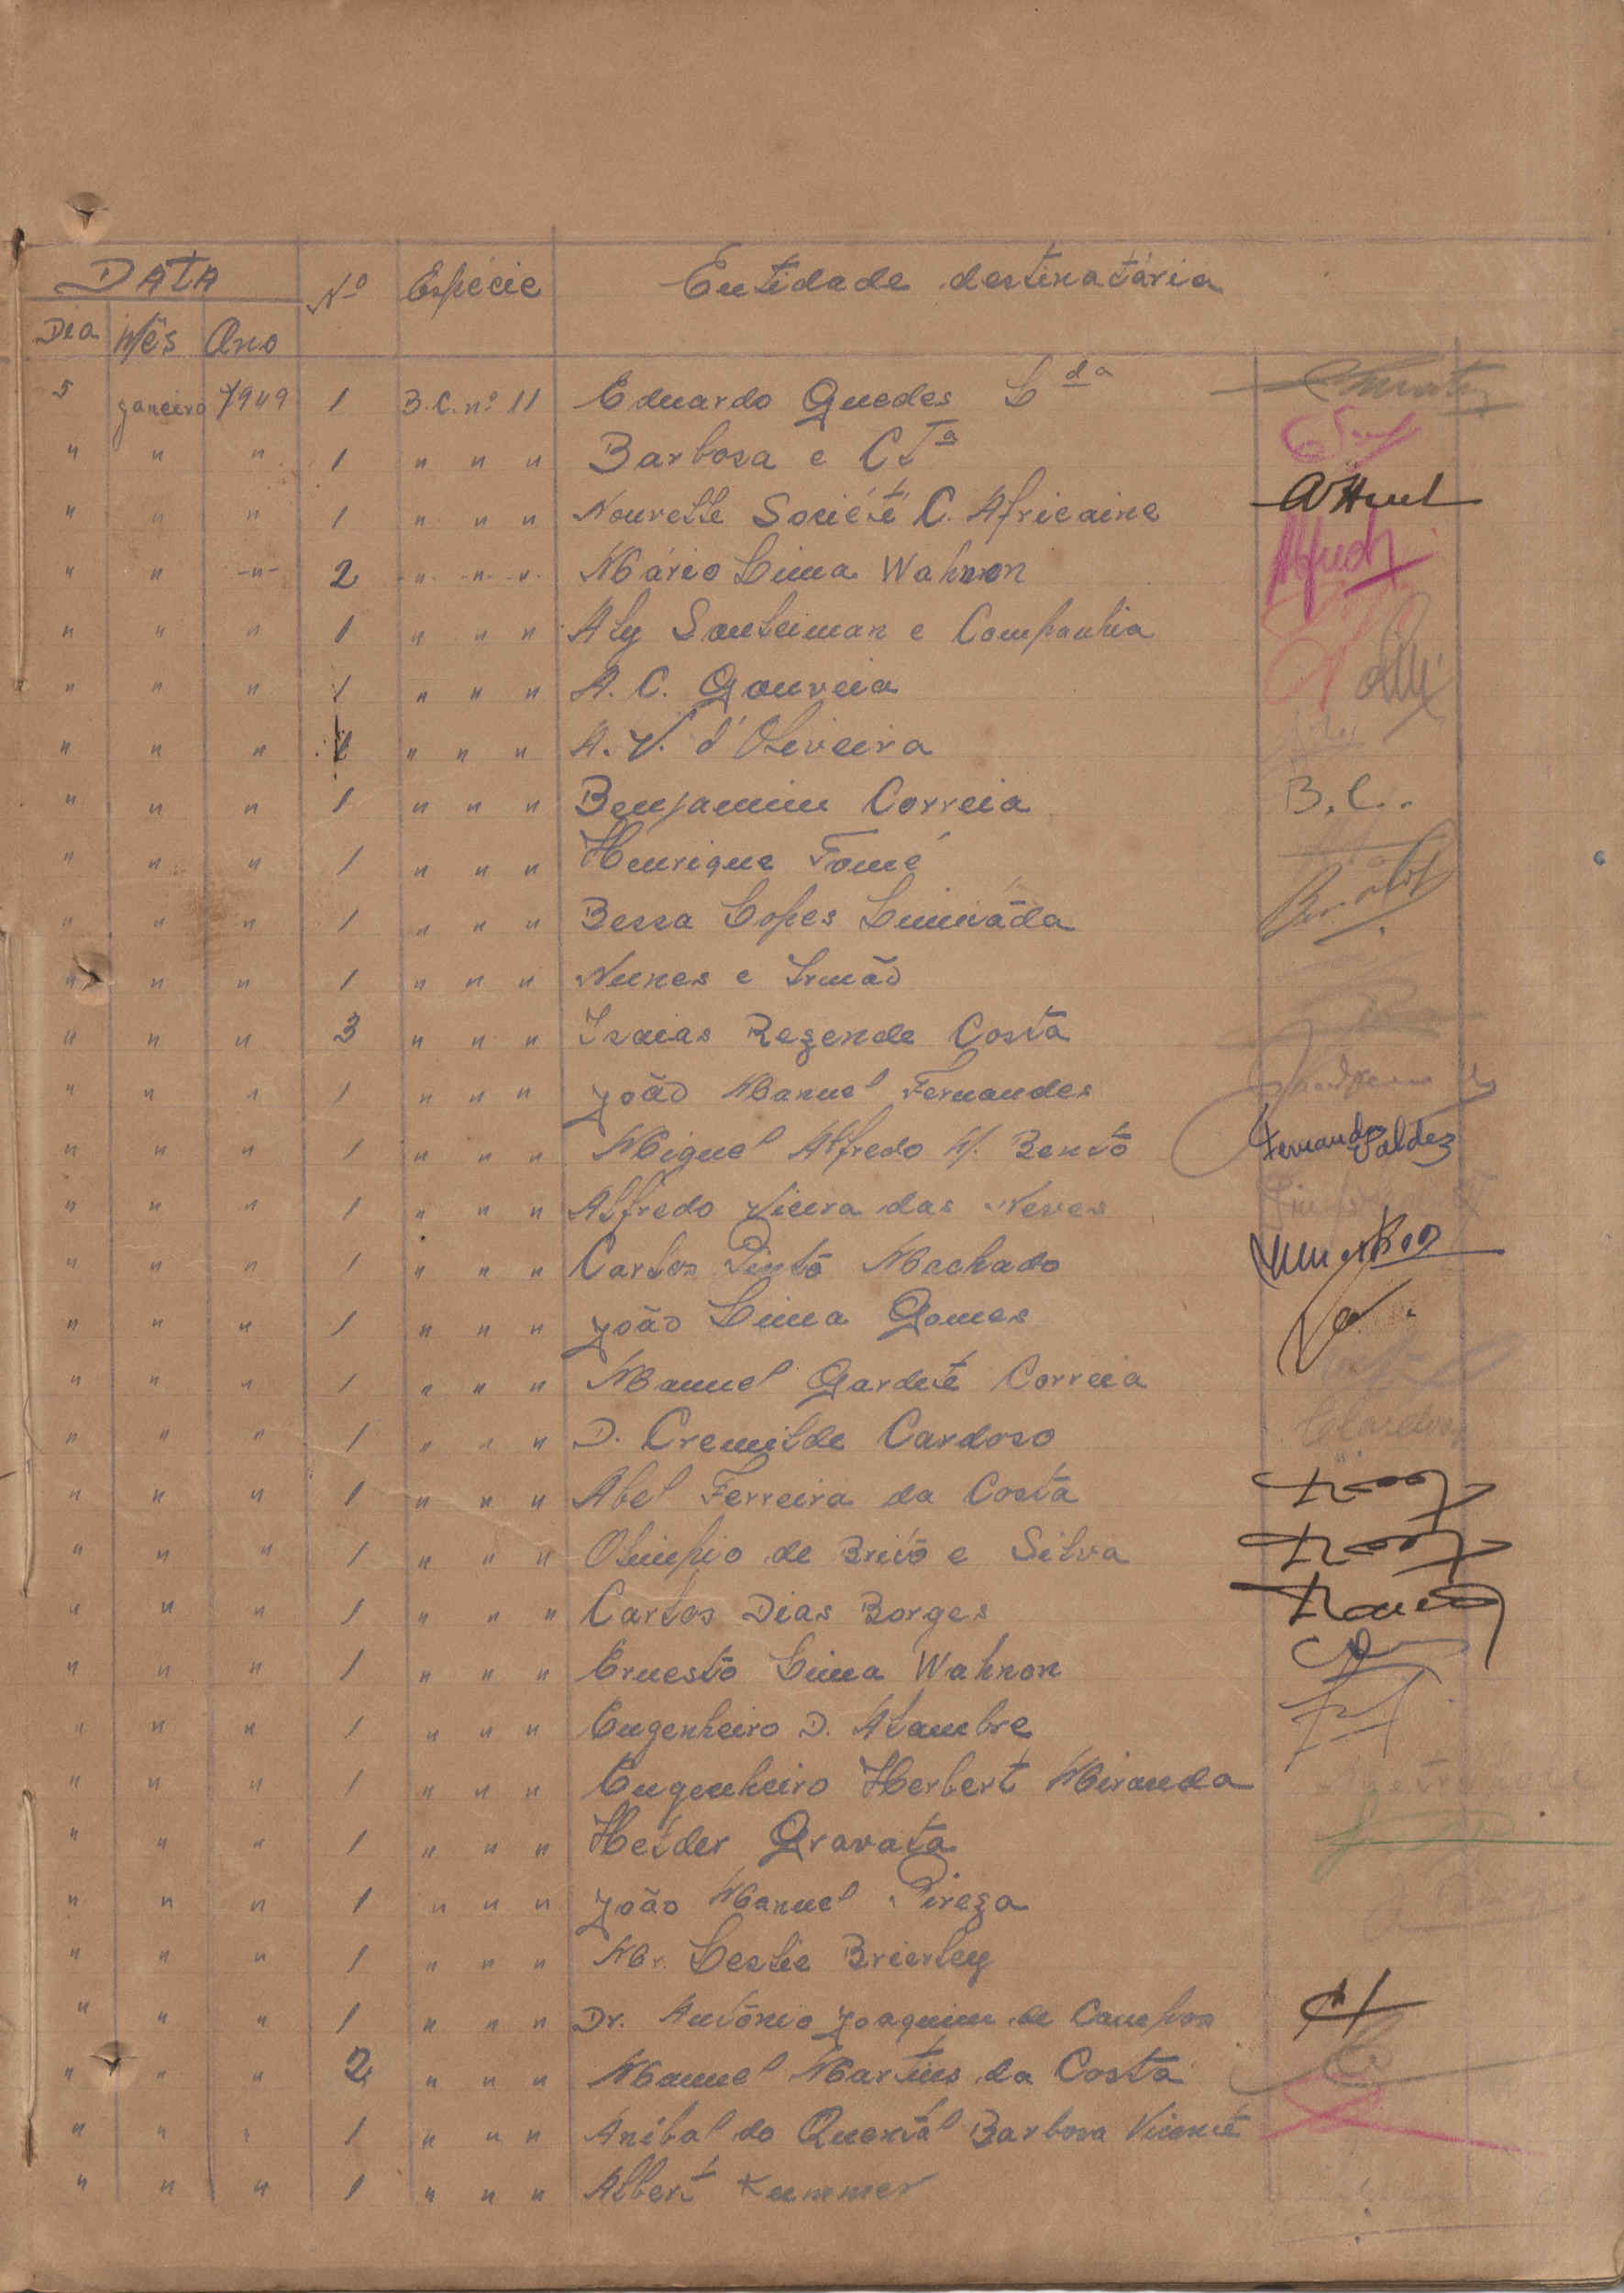 DATA Nº Espécie Entidade destinatária
Dia Mês Ano
5 Janeiro 1949 1 B.C. nº 11 Eduardo Guedes Lda
" " " 1 " " " Barbosa e Cta
" " " 1 " " " Nouvelle Société C. Africaine
" " -"- 2 " " " Mário Lima Wahnon
" " " 1 " " " Aly Souleiman e Companhia
" " " 1 " " " A. C. Gouveia
" " " 1 " " " A. V. d'Oliveira
" " " 1 " " " Benjamim Correia B. C.
" " " 1 " " " Henrique Tomé
" " " 1 " " " Bessa Lopes Limitáda
" " " 1 " " " Nunes e Irmão
" " " 3 " " " Isaias Rezende Costa
" " " 1 " " " João Manuel Fernandes
" " " 1 " " " Miguel Alfredo M. Bento Fernando Valdez
" " " 1 " " " Alfredo Vieira das Neves
" " " 1 " " " Carlos Pinto Machado
" " " 1 " " " João Lima Gomes
" " " 1 " " " Manuel Gardeté Correia
" " " 1 " " " D. Cremilde Cardoso
" " " 1 " " " Abel Ferreira da Costa
" " " 1 " " " Olimpio de Brito e Silva
" " " 1 " " " Carlos Dias Borges
" " " 1 " " " Ernesto Lima Wahnon
" " " 1 " " " Engenheiro D. Alambre
" " " 1 " " " Engenheiro Herbert Miranda
" " " 1 " " " Helder Gravata
" " " 1 " " " João Manuel Pireza
" " " 1 " " " Mr. Leslie Brierley
" " " 1 " " " Dr. António Joaquim de Campos
" " " 2 " " " Manuel Martins da Costa
" " " 1 " " " Aníbal do Quental Barbosa Vicente
" " " 1 " " " Albert Kummer